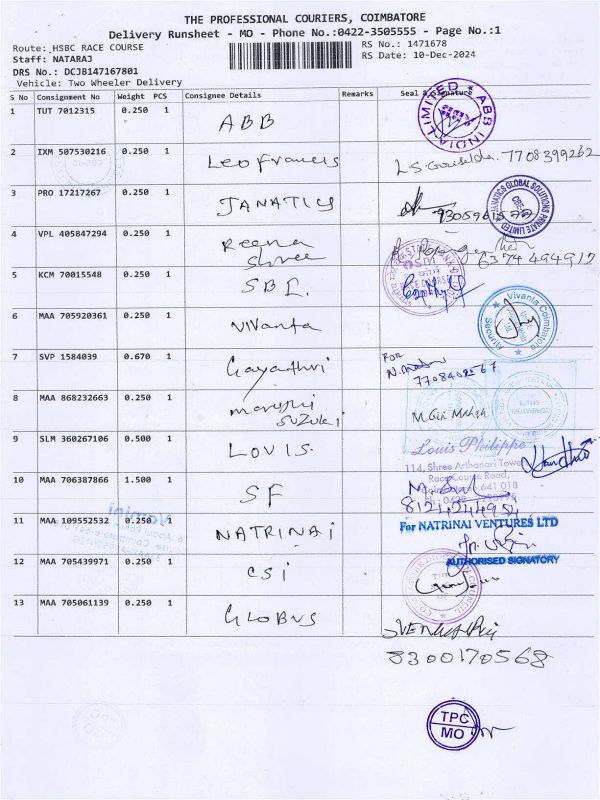 THE PROFESSIONAL COURIERS, COIMBATORE
Delivery Runsheet - MO - Phone No.:0422-3505555 - Page No.:1
Route: HSBC RACE COURSE
RS No.: 1471678
Staff: NATARAJ
RS Date: 10-Dec-2024
DRS No.: DCJB147167801
Vehicle: Two Wheeler Delivery
S No Consignment No Weight PCS Consignee Details Remarks Seal & Signature
1 TUT 7012315 0.250 1 ABB
ABB INDIA LIMITED
2 IXM 507530216 0.250 1 Leo Francis 7708399262
3 PRO 17217267 0.250 1 JANATICS
GLOBAL SOLUTIONS PRIVATE LIMITED
CBE
4 VPL 405847294 0.250 1 Reena Shree 6374494917
5 KCM 70015548 0.250 1 SBI
6 MAA 705920361 0.250 1 Vivanta
Vivanta Coimbatore
Security
7 SVP 1584039 0.670 1 Gayathri
FOR
7708402567
8 MAA 868232663 0.250 1 maruthi SUZUKI
9 SLM 360267106 0.500 1 LOUIS.
Louis Philippe
114, Shree Arthanari Tower
Race Course Road,
Coimbatore - 641 018
10 MAA 706387866 1.500 1 SF
8124244954
11 MAA 109552532 0.250 1 NATRINAI
For NATRINAI VENTURES LTD
AUTHORISED SIGNATORY
12 MAA 705439971 0.250 1 CSI
13 MAA 705061139 0.250 1 GLOBUS
8300170568
TPC
MO